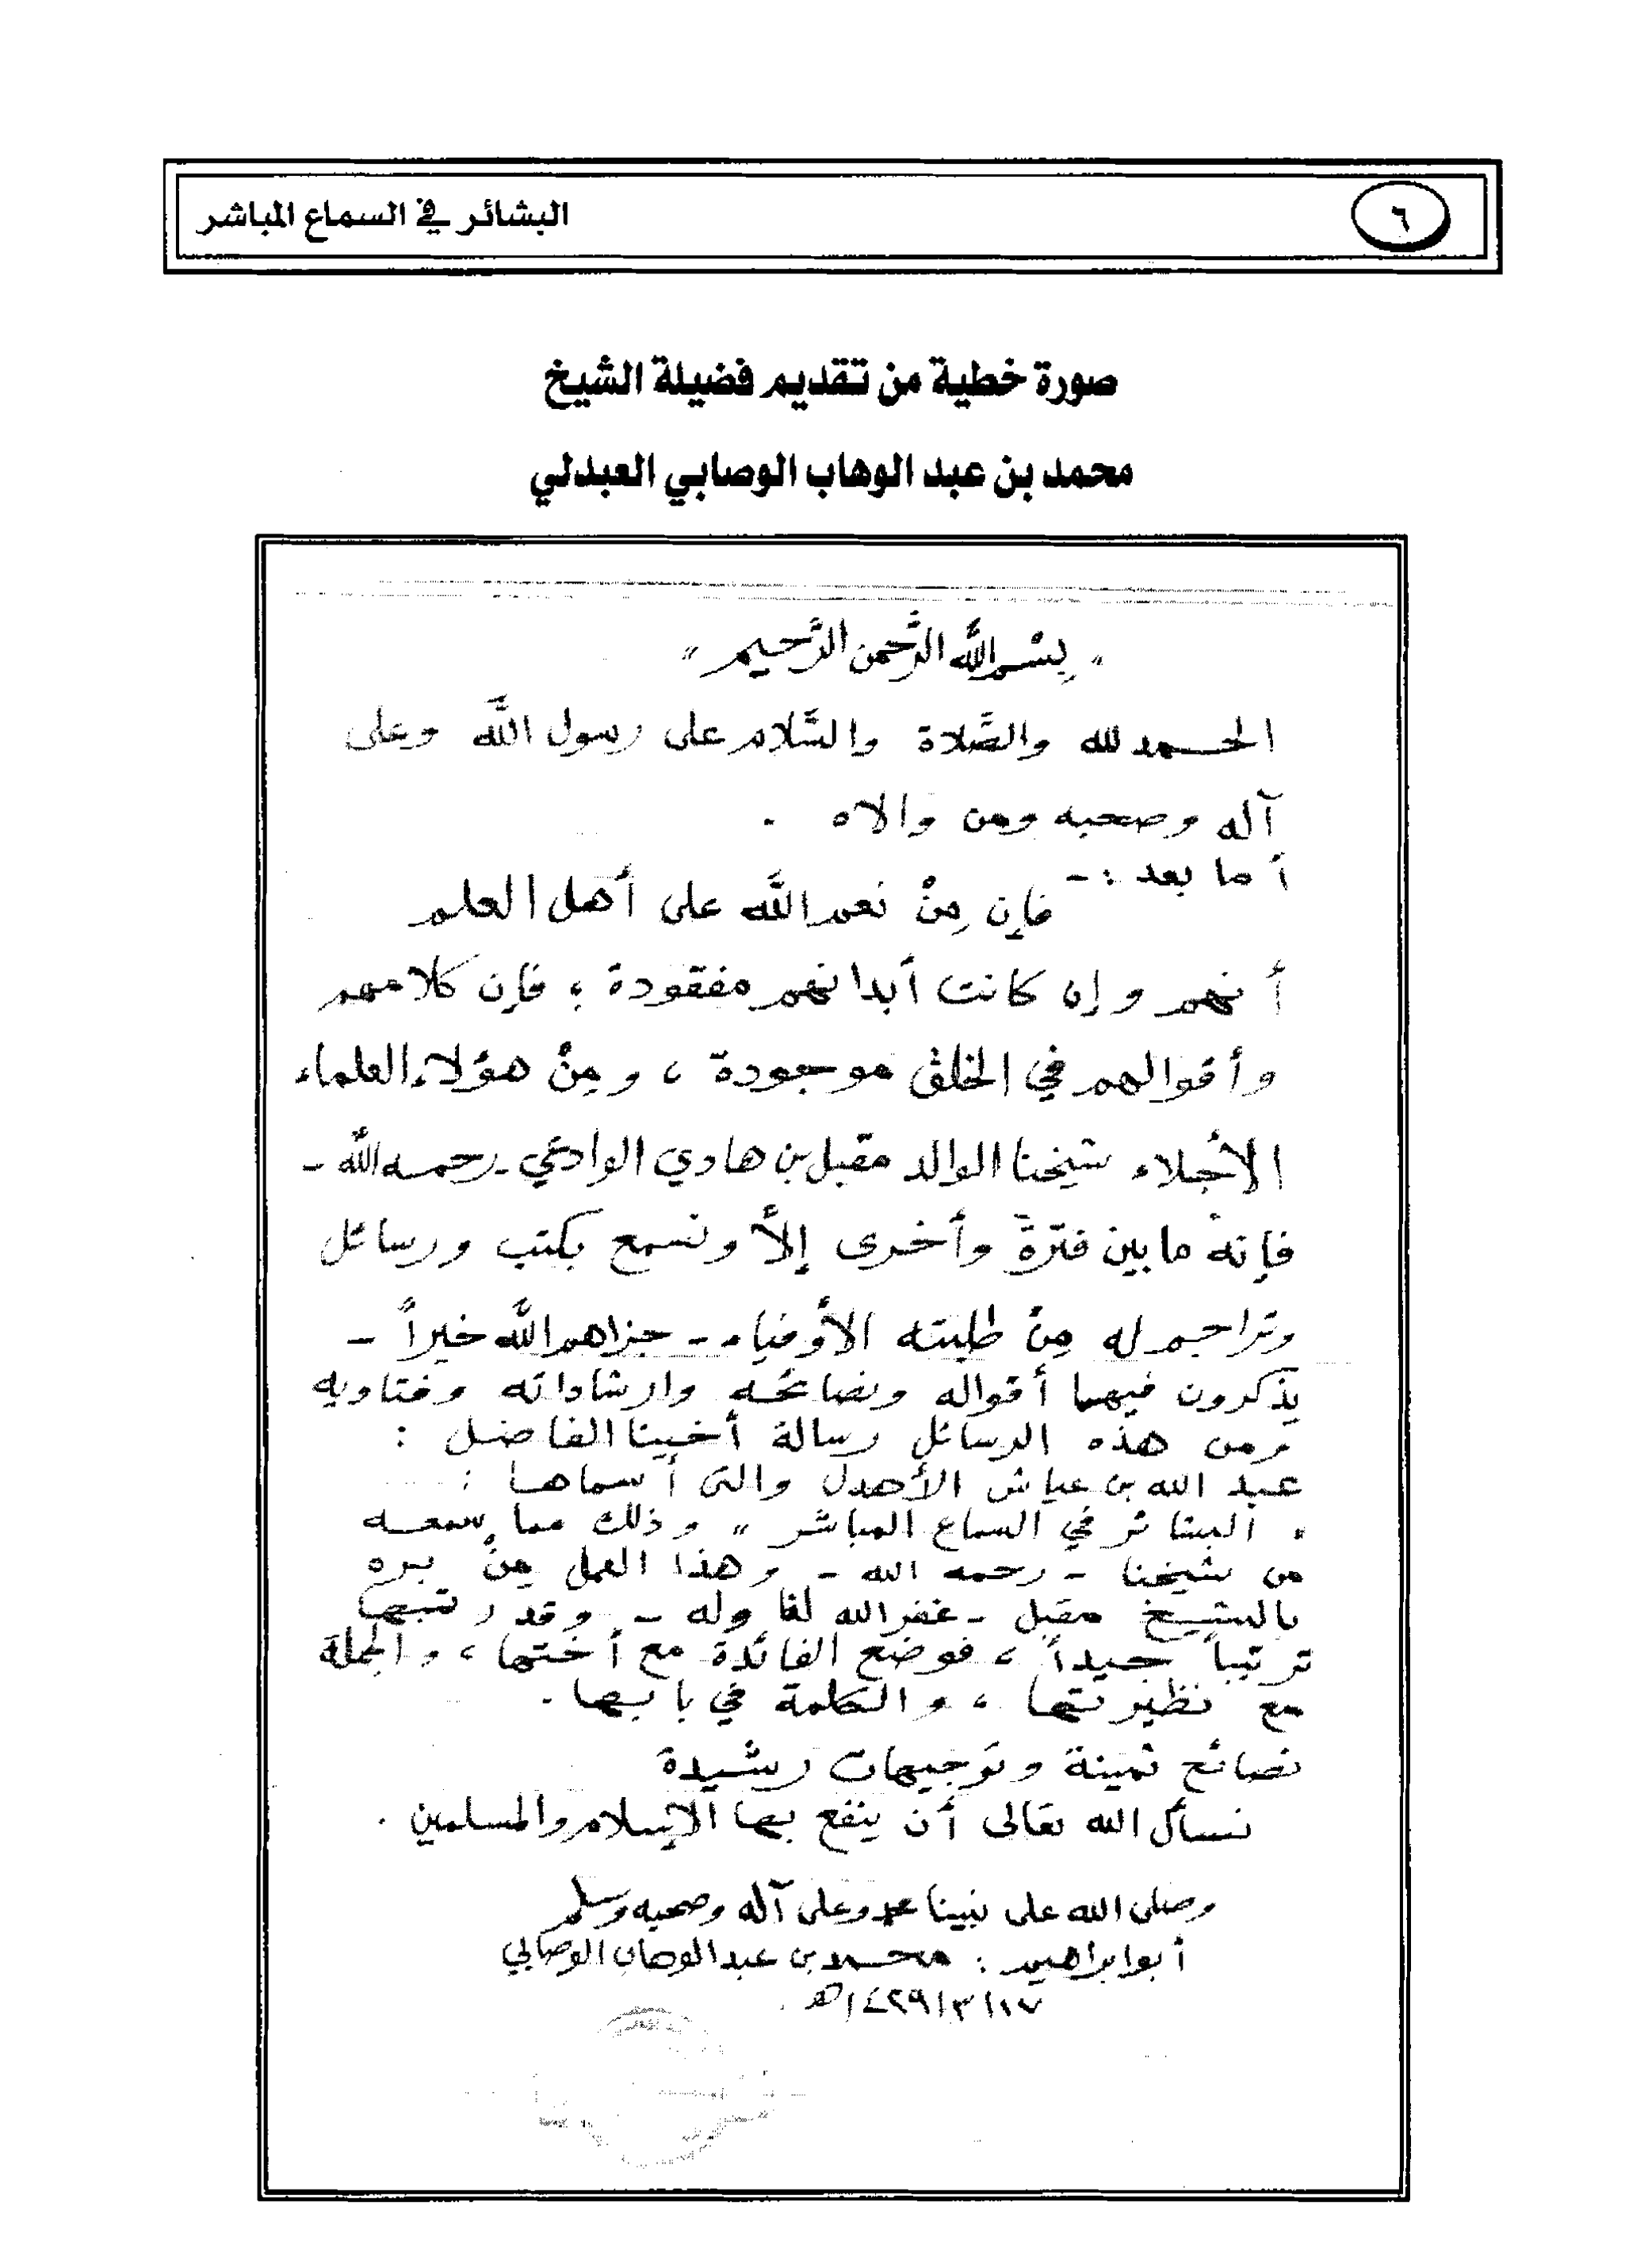 ٦
البشائر في السماع المباشر
صورة خطية من تقديم فضيلة الشيخ
محمد بن عبد الوهاب الوصابي العبدلي
" بِسْمِ اللَّه الرَّحمن الرَّحيم "
الحمد لله والصَّلاة والسَّلام على رسول اللَّه وعلى
آله وصحبه ومن والاه .
أما بعد :-
فإن مِنْ نعم اللَّه على أهل العلم
أنهم وإن كانت أبدانهم مفقودة ؛ فإن كلامهم
وأقوالهم في الخلق موجودة ، ومِنْ هؤلاء العلماء
الأجلاء شيخنا الوالد مقبل بن هادي الوادعي - رحمه اللَّه -
فإنه ما بين فترة وأخرى إلاَّ ونسمع بكتب ورسائل
وتراجم له مِنْ طلبته الأوفياء - جزاهم اللَّه خيراً -
يذكرون فيها أقواله ونصائحه وارشاداته وفتاويه
ومن هذه الرسائل رسالة أخينا الفاضل :
عبد الله بن عياش الأهدل والتى أسماها :
" البشائر في السماع المباشر " وذلك مما سمعه
من شيخنا - رحمه الله - وهذا العمل مِنْ بره
بالشيخ مقبل - غفر الله لنا وله - وقد رتبها
ترتيباً جيداً ، فوضع الفائدة مع أختها ، والجملة
مع نظيرتها ، والكلمة في بابها .
نصائح ثمينة وتوجيهات رشيدة
نسأل الله تعالى أن ينفع بها الإسلام والمسلمين .
وصلى الله على نبينا محمد وعلى آله وصحبه وسلم
أبو ابراهيم : محمد بن عبد الوهاب الوصابي
١٧/٣/١٤٢٩هـ